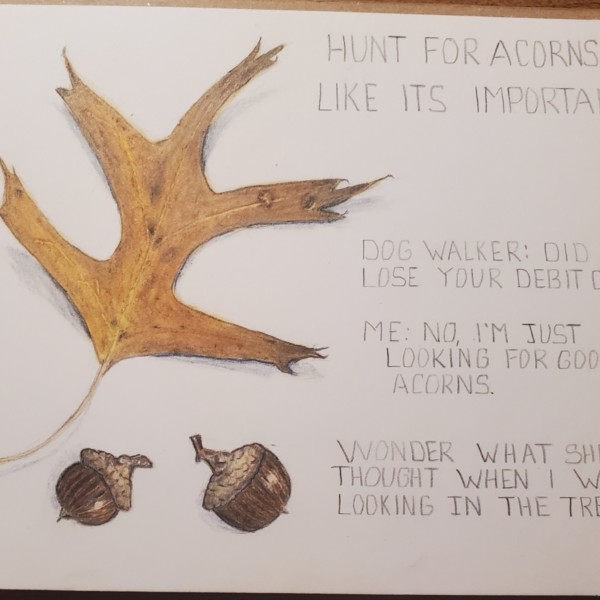 HUNT FOR ACORNS
LIKE ITS
DOG WALKER: DID
LOSE YOUR DEBIT
ME: NO, I'M JUST
LOOKING FOR
ACORNS.
WONDER WHAT
THOUGHT WHEN I
LOOKING IN THE